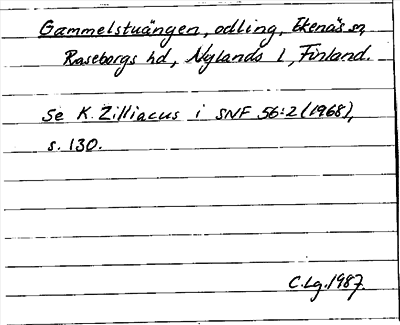 Gammelstuängen, odling, Ekenäs sn,
Raseborgs hd, Nylands l, Finland.
Se K. Zilliacus i SNF 56:2 (1968),
s. 130.
C. Lg. 1987.